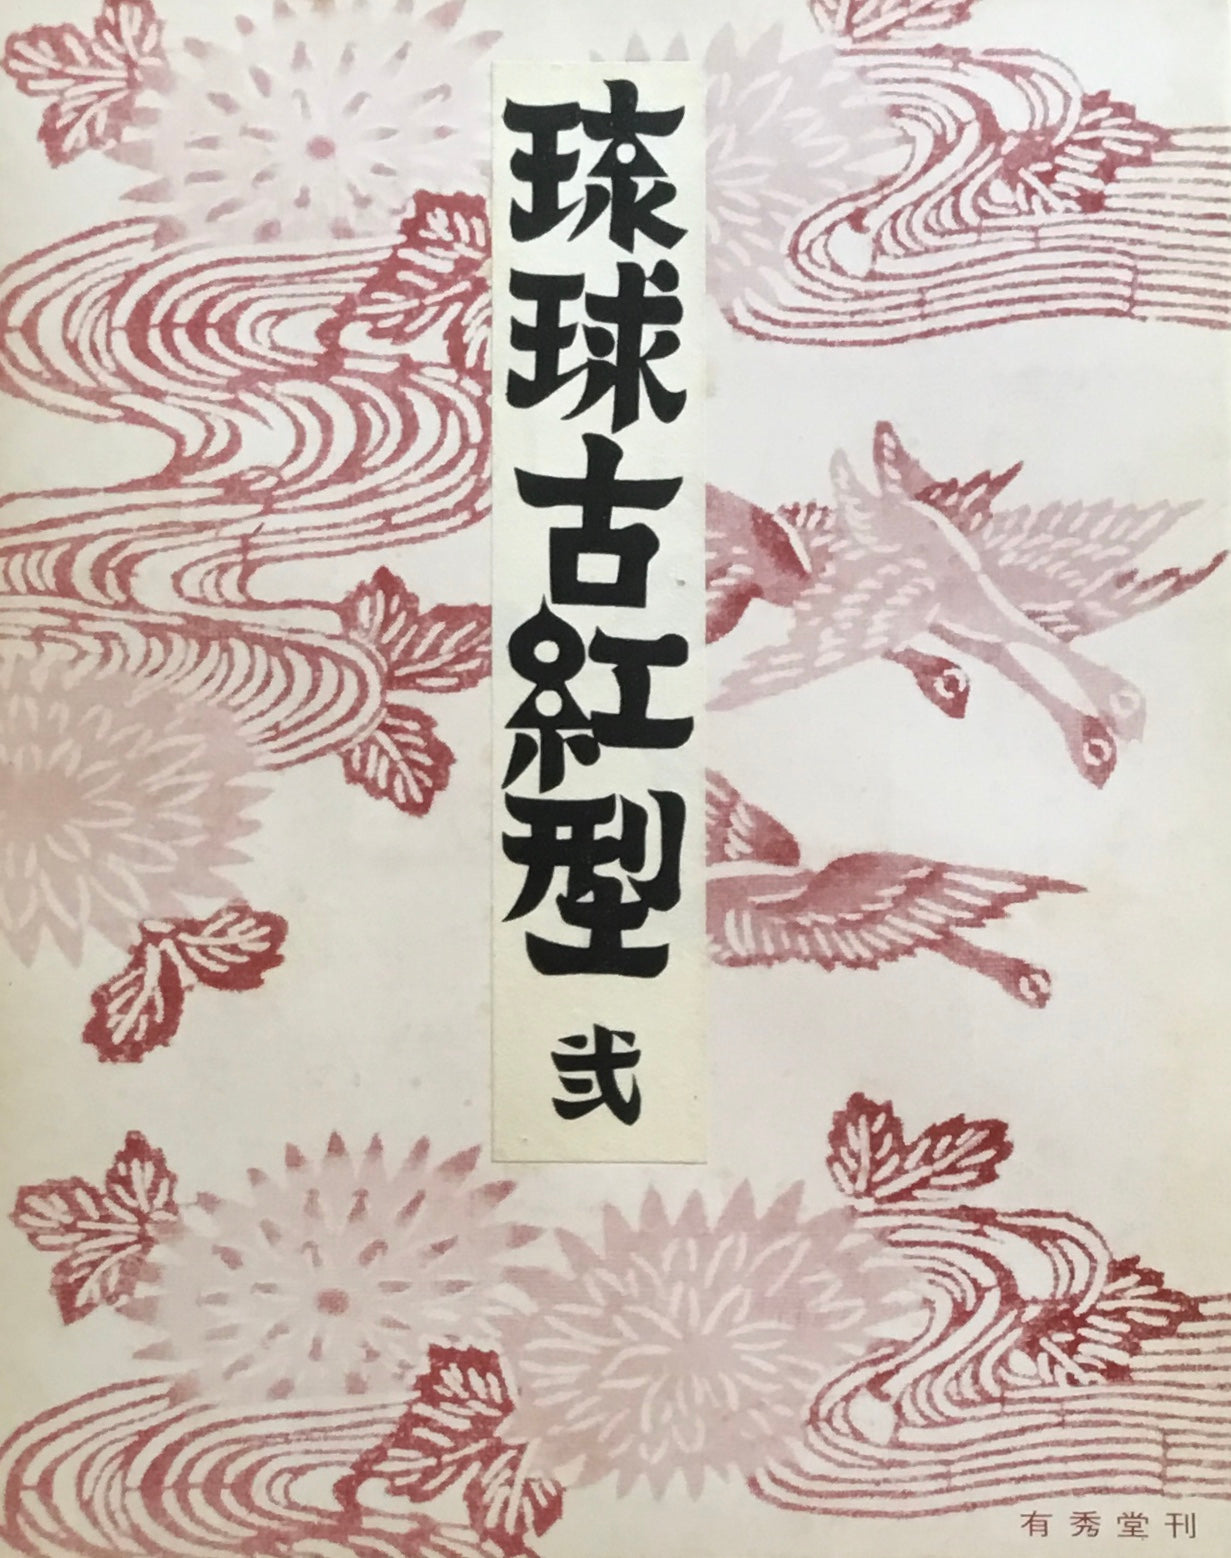 琉球古紅型
弐
有秀堂刊